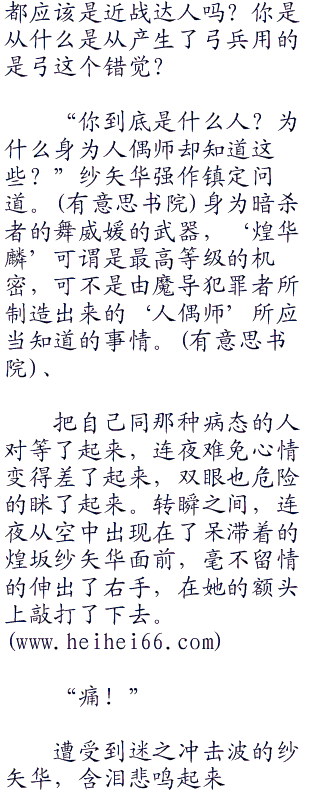 都应该是近战达人吗？你是
从什么是从产生了弓兵用的
是弓这个错觉？
“你到底是什么人？为
什么身为人偶师却知道这
些？”纱矢华强作镇定问
道。(有意思书院)身为暗杀
者的舞威媛的武器，‘煌华
麟’可谓是最高等级的机
密，可不是由魔导犯罪者所
制造出来的‘人偶师’所应
当知道的事情。(有意思书
院)、
把自己同那种病态的人
对等了起来，连夜难免心情
变得差了起来，双眼也危险
的眯了起来。转瞬之间，连
夜从空中出现在了呆滞着的
煌坂纱矢华面前，毫不留情
的伸出了右手，在她的额头
上敲打了下去。
(www.heihei66.com)
“痛！”
遭受到迷之冲击波的纱
矢华，含泪悲鸣起来